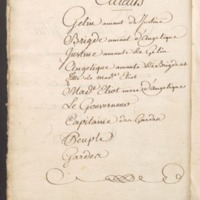 Acteurs
Gelin amant de Justine
Brigde amant d'Angelique
Justine amante de Gelin
Angelique amante de Brigde et
fille de mad.e Eliot
Mad.e Eliot mere d'Angelique
Le Gouverneur
Capitaine des Gardes
Peuple
Gardes